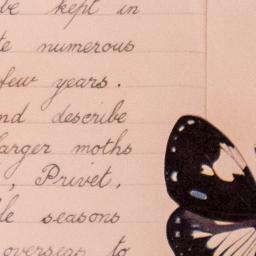 be kept in
te numerous
few years.
nd describe
arger moths
, Privet,
le seasons
overseas to